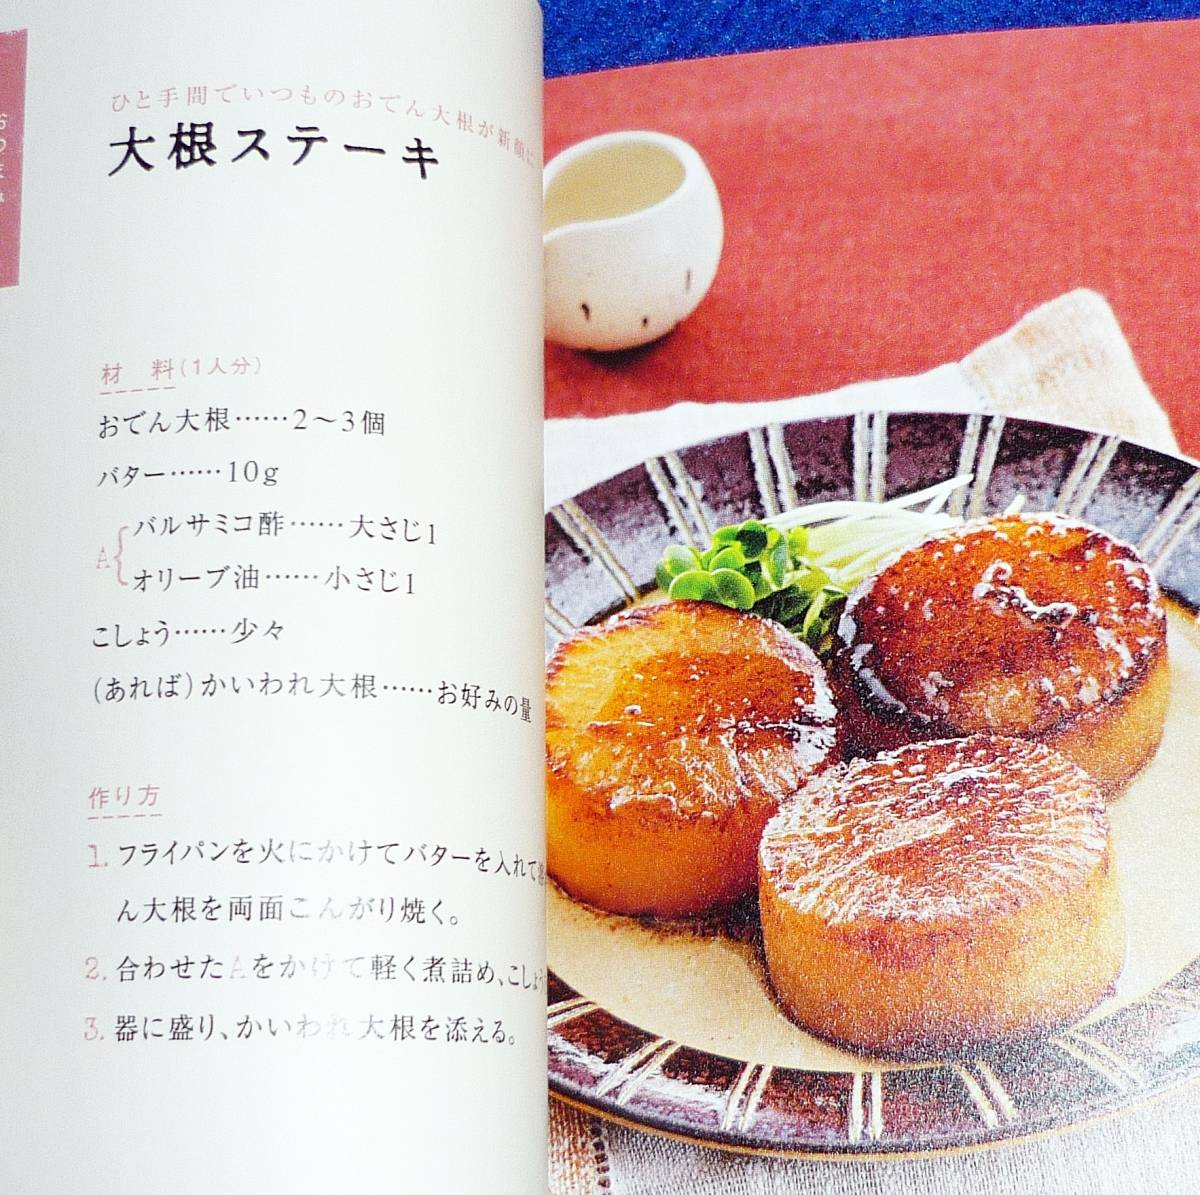 おつまみ
ひと手間でいつものおでん大根が新顔に
大根ステーキ
材 料(1人分)
おでん大根……2〜3個
バター……10g
A{バルサミコ酢……大さじ1
オリーブ油……小さじ1
こしょう……少々
(あれば)かいわれ大根……お好みの量
作り方
1. フライパンを火にかけてバターを入れて
ん大根を両面こんがり焼く。
2. 合わせたAをかけて軽く煮詰め、こしょう
3. 器に盛り、かいわれ大根を添える。